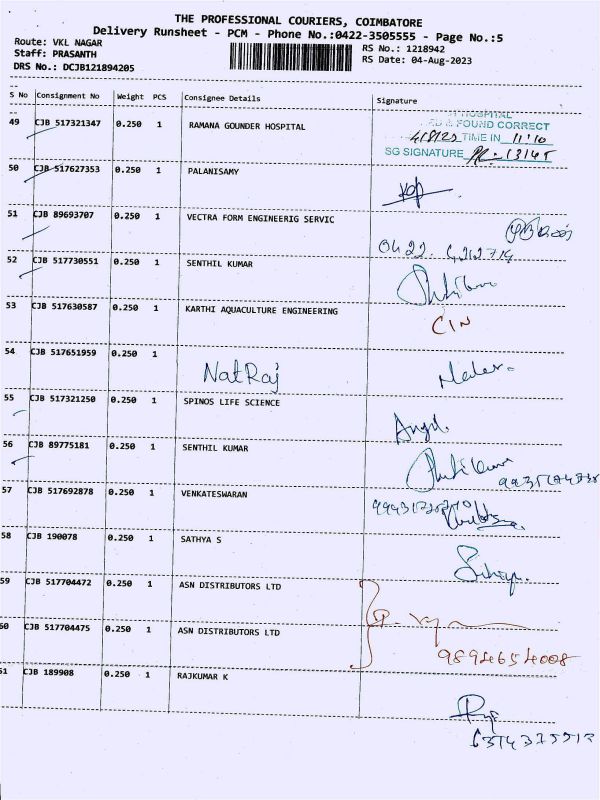 THE PROFESSIONAL COURIERS, COIMBATORE
Delivery Runsheet - PCM - Phone No.:0422-3505555 - Page No.:5
Route: VKL NAGAR
RS No.: 1218942
Staff: PRASANTH
RS Date: 04-Aug-2023
DRS No.: DCJB121894205
S No Consignment No Weight PCS Consignee Details Signature
HOSPITAL
& FOUND CORRECT
4/8/23 TIME IN 11:10
SG SIGNATURE 13145
49 CJB 517321347 0.250 1 RAMANA GOUNDER HOSPITAL
50 CJB 517627353 0.250 1 PALANISAMY
51 CJB 89693707 0.250 1 VECTRA FORM ENGINEERIG SERVIC
0422
52 CJB 517730551 0.250 1 SENTHIL KUMAR
53 CJB 517630587 0.250 1 KARTHI AQUACULTURE ENGINEERING
CIN
54 CJB 517651959 0.250 1
NatRaj
55 CJB 517321250 0.250 1 SPINOS LIFE SCIENCE
56 CJB 89775181 0.250 1 SENTHIL KUMAR
57 CJB 517692878 0.250 1 VENKATESWARAN
58 CJB 190078 0.250 1 SATHYA S
59 CJB 517704472 0.250 1 ASN DISTRIBUTORS LTD
60 CJB 517704475 0.250 1 ASN DISTRIBUTORS LTD
9894654008
51 CJB 189908 0.250 1 RAJKUMAR K